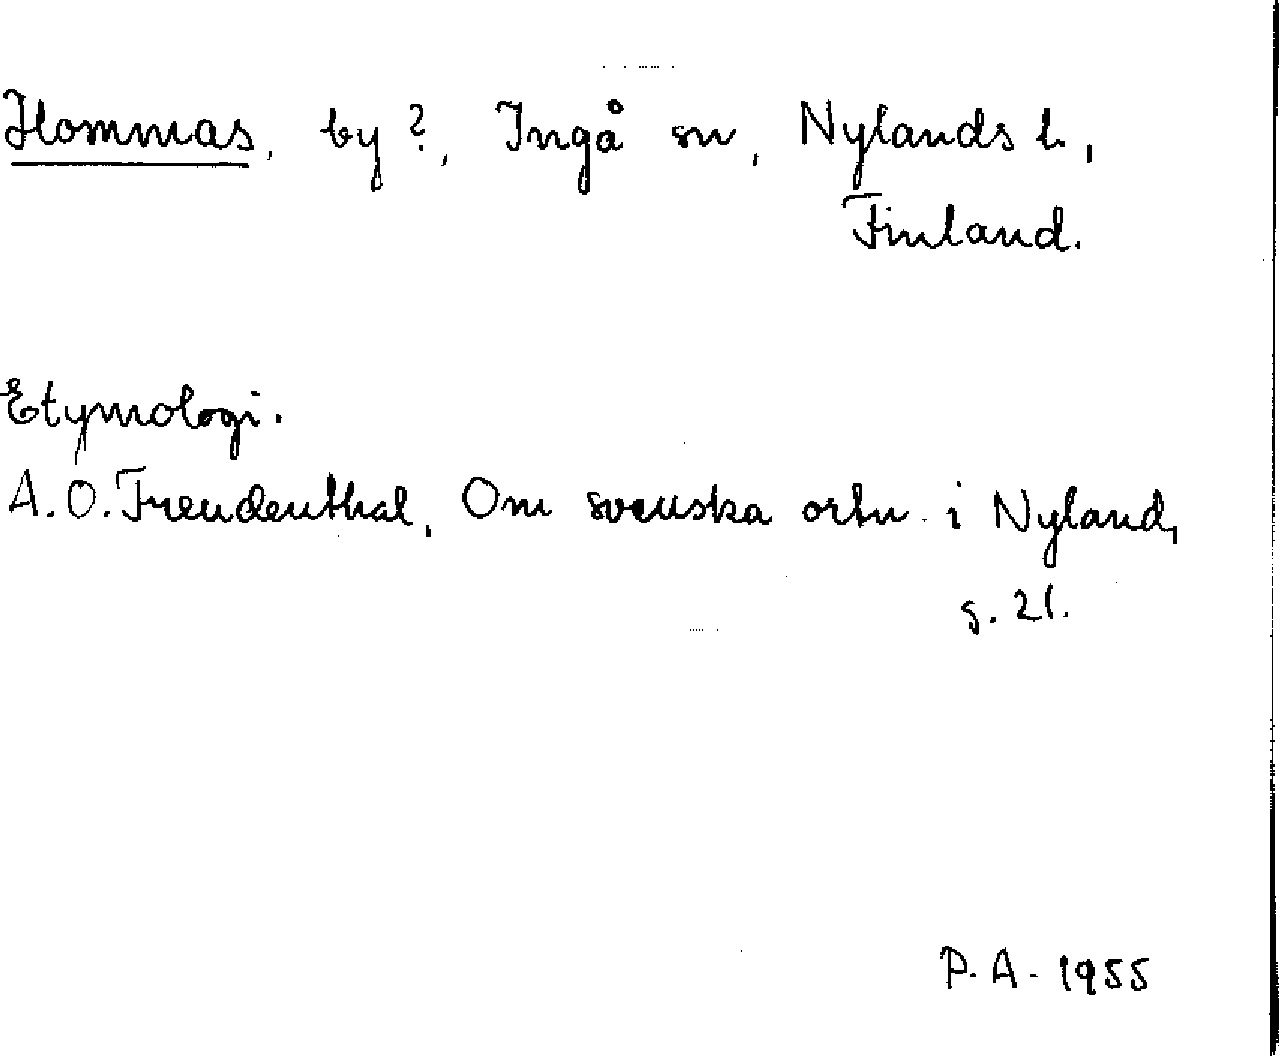 Hommas, by?, Ingå sn, Nylands l.,
Finland.
Etymologi.
A.O. Freudenthal, Om svenska ortn. i Nyland,
s. 21.
P.A. 1955